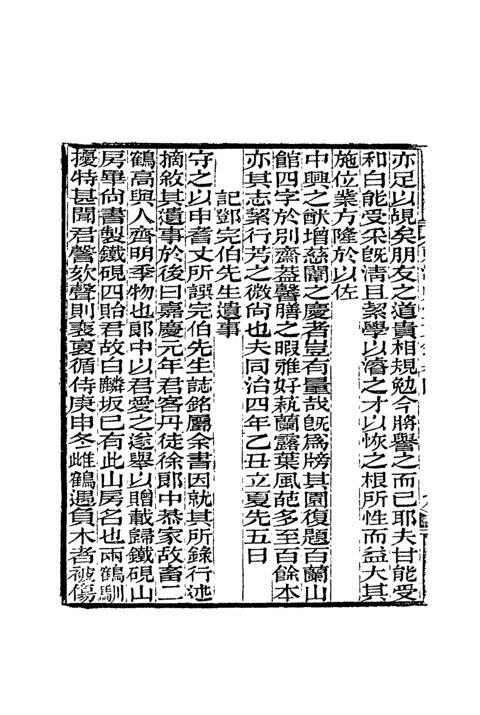 亦足以覘矣朋友之道貴相規勉今將譽之而已耶夫甘能受
和白能受采旣淸且絜學以濬之才以恢之根所性而益大其
施位業方隆於以佐
中興之猷增慈闈之慶者豈有量哉旣爲牓其園復題百蘭山
館四字於別齋葢馨膳之暇雅好蓺蘭露葉風葩多至百餘本
亦其志絜行芳之微尙也夫同治四年乙丑立夏先五日
記鄧完伯先生遺事
守之以申耆丈所譔完伯先生誌銘屬余書因就其所錄行述
摘敘其遺事於後曰嘉慶元年君客丹徒徐郞中恭家故畜二
鶴高與人齊明季物也郞中以君愛之遂舉以贈載歸鐵硯山
房畢尙書製鐵硯四貽君故白麟坂已有此山房名也兩鶴馴
擾特甚聞君謦欬聲則裵裏循侍庚申冬雌鶴遇負木者被傷